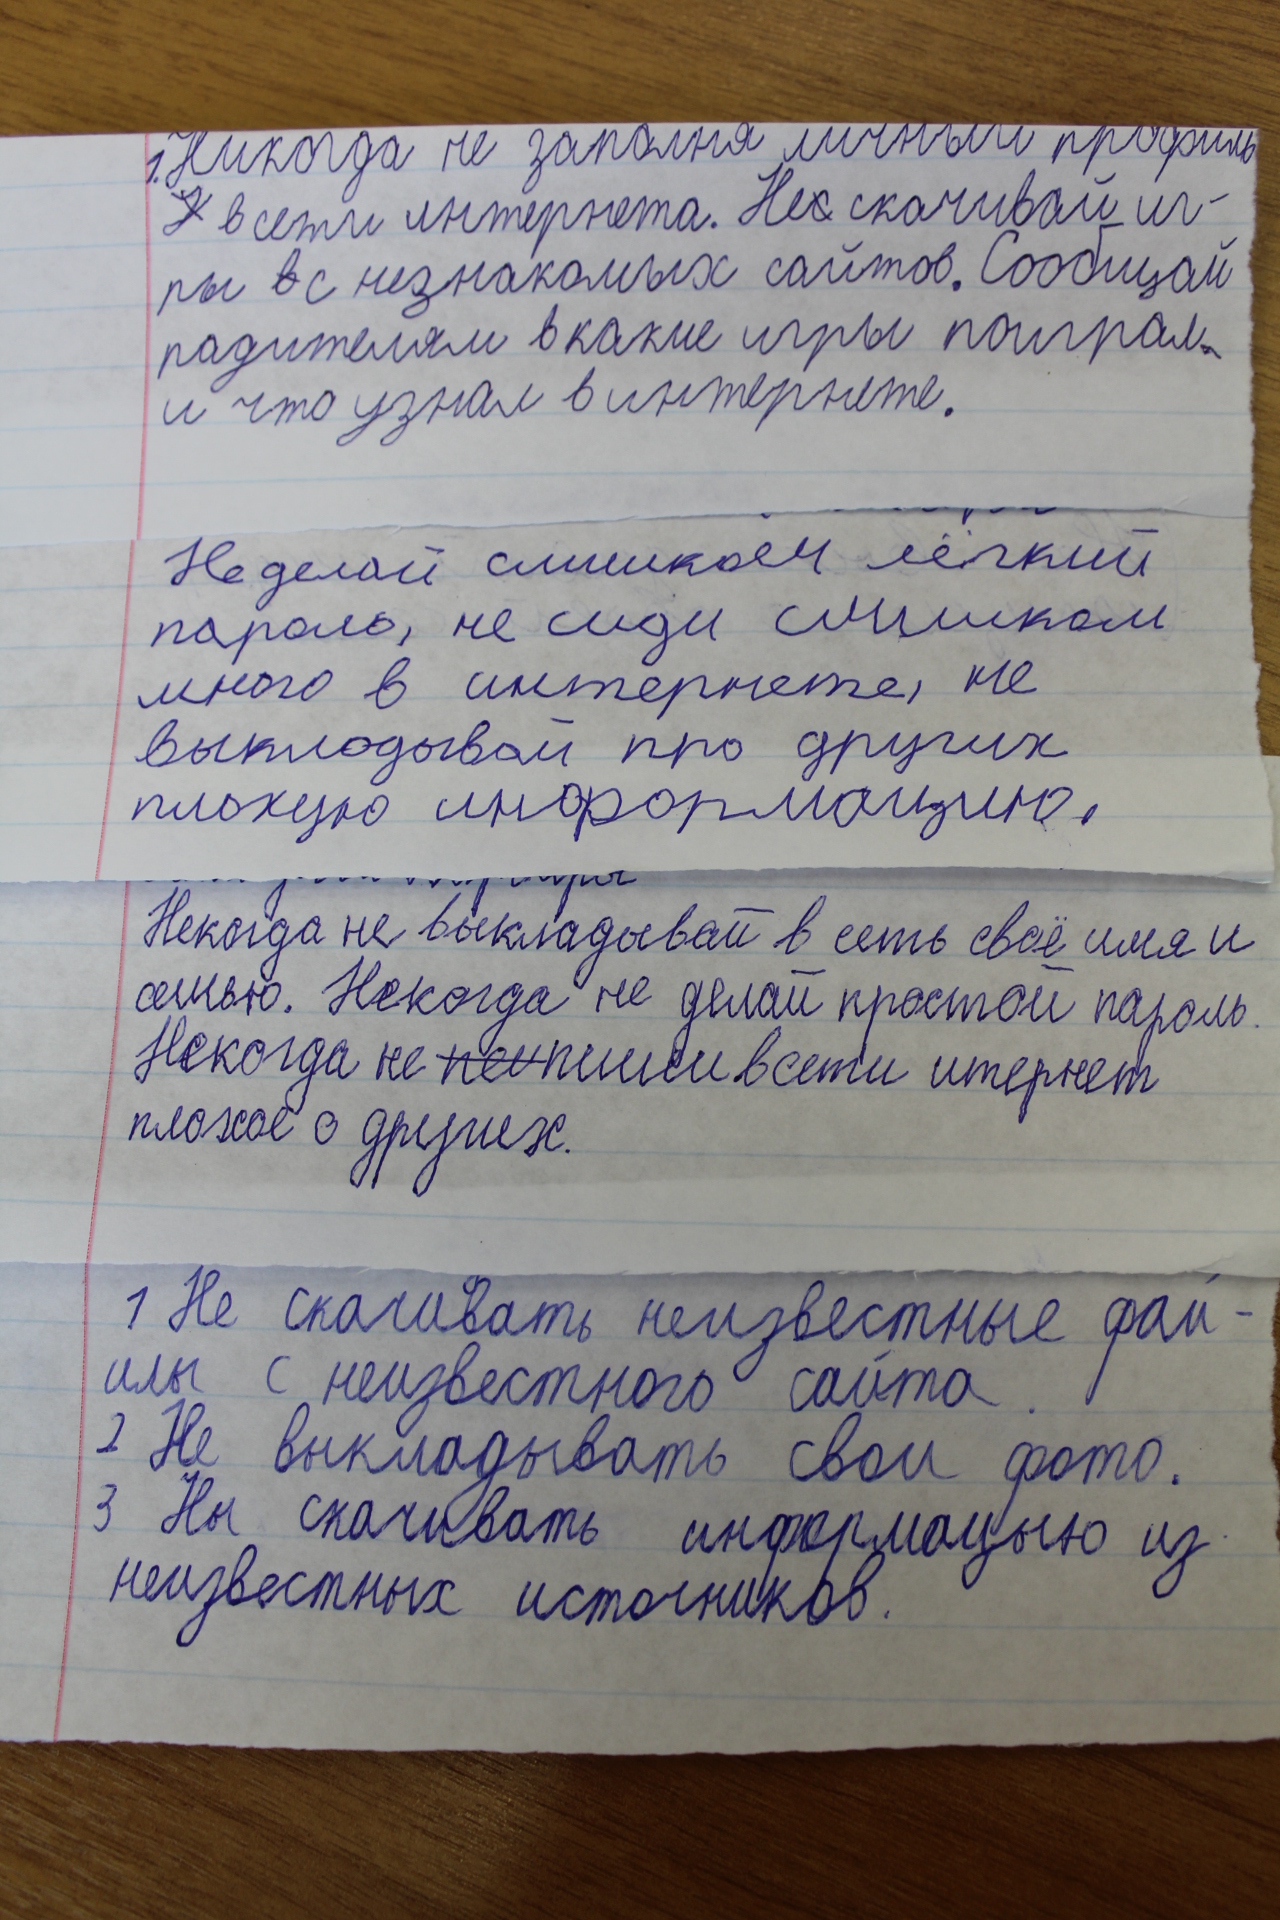 1. Никогда не заполня личный профиль
в сети интернета. Не скачивай иг-
ры с незнакомых сайтов. Сообщай
радителям в какие игры поиграл
и что узнал в интернете.
Не делай слишкоем лёгкий
пароль, не сиди слишком
много в интернете, не
выклодывай про других
плохую информацию.
Некогда не выкладывай в сеть своё имя и
семью. Некогда не делай простой пароль.
Некогда не пиши в сети итернет
плохое о других.
1 Не скачивать неизвестные фай-
илы с неизвестного сайта.
2 Не выкладывать свои фото.
3 Ны скачивать информацыю из
неизвестных источников.